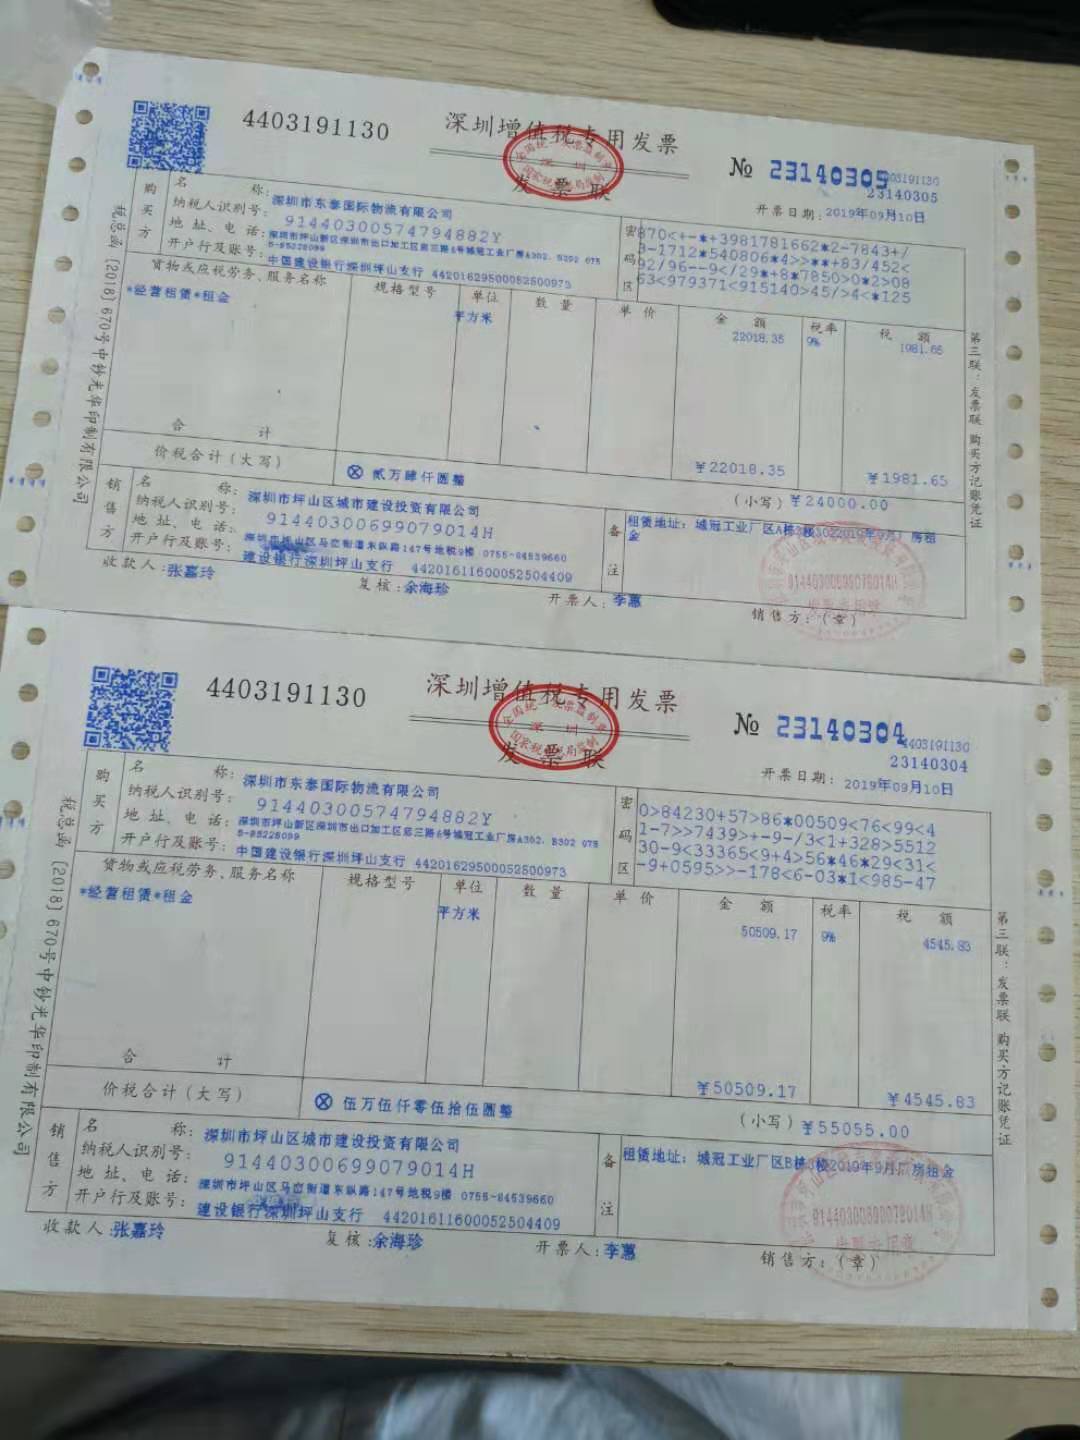 4403191130
深圳增值税专用发票
发票联
№ 23140305
4403191130
23140305
开票日期: 2019年09月10日
购买方
名 称: 深圳市东泰国际物流有限公司
纳税人识别号: 91440300574794882Y
地 址、电 话: 深圳市坪山新区深圳市出口加工区启三路6号城冠工业厂房A302、B302 0755-85228099
开户行及账号: 中国建设银行深圳坪山支行 44201629500052500973
密码区
870<+-*+3981781662*2-7843+/
3-1712*540806*4>>**+83/452<
92/96--9</29*+8*7850>0*2>08
63<979371<915140>45/>4<*125
货物或应税劳务、服务名称 规格型号 单位 数 量 单 价 金 额 税率 税 额
*经营租赁*租金 平方米 22018.35 9% 1981.65
合 计 ¥22018.35 ¥1981.65
价税合计(大写) ⊗ 贰万肆仟圆整 (小写) ¥24000.00
销售方
名 称: 深圳市坪山区城市建设投资有限公司
纳税人识别号: 91440300699079014H
地 址、电 话: 深圳市坪山区马峦街道东纵路147号地税9楼 0755-84539660
开户行及账号: 建设银行深圳坪山支行 44201611600052504409
备注
租赁地址:城冠工业厂区A栋3楼3022019年9月厂房租
金
收款人: 张嘉玲 复核: 余海珍 开票人: 李蕙 销售方:(章)
91440300699079014H
发票专用章
税总函〔2018〕670号中钞光华印制有限公司
第三联:发票联 购买方记账凭证
4403191130
深圳增值税专用发票
发票联
№ 23140304
4403191130
23140304
开票日期: 2019年09月10日
购买方
名 称: 深圳市东泰国际物流有限公司
纳税人识别号: 91440300574794882Y
地 址、电 话: 深圳市坪山新区深圳市出口加工区启三路6号城冠工业厂房A302、B302 0755-85228099
开户行及账号: 中国建设银行深圳坪山支行 44201629500052500973
密码区
0>84230+57>86*00509<76<99<4
1-7>>7439>+-9-/3<1+328>5512
30-9<33365<9+4>56*46*29<31<
-9+0595>>-178<6-03*1<985-47
货物或应税劳务、服务名称 规格型号 单位 数 量 单 价 金 额 税率 税 额
*经营租赁*租金 平方米 50509.17 9% 4545.83
合 计 ¥50509.17 ¥4545.83
价税合计(大写) ⊗ 伍万伍仟零伍拾伍圆整 (小写) ¥55055.00
销售方
名 称: 深圳市坪山区城市建设投资有限公司
纳税人识别号: 91440300699079014H
地 址、电 话: 深圳市坪山区马峦街道东纵路147号地税9楼 0755-84539660
开户行及账号: 建设银行深圳坪山支行 44201611600052504409
备注
租赁地址:城冠工业厂区B栋3楼2019年9月厂房租金
收款人: 张嘉玲 复核: 余海珍 开票人: 李蕙 销售方:(章)
91440300699079014H
发票专用章
税总函〔2018〕670号中钞光华印制有限公司
第三联:发票联 购买方记账凭证